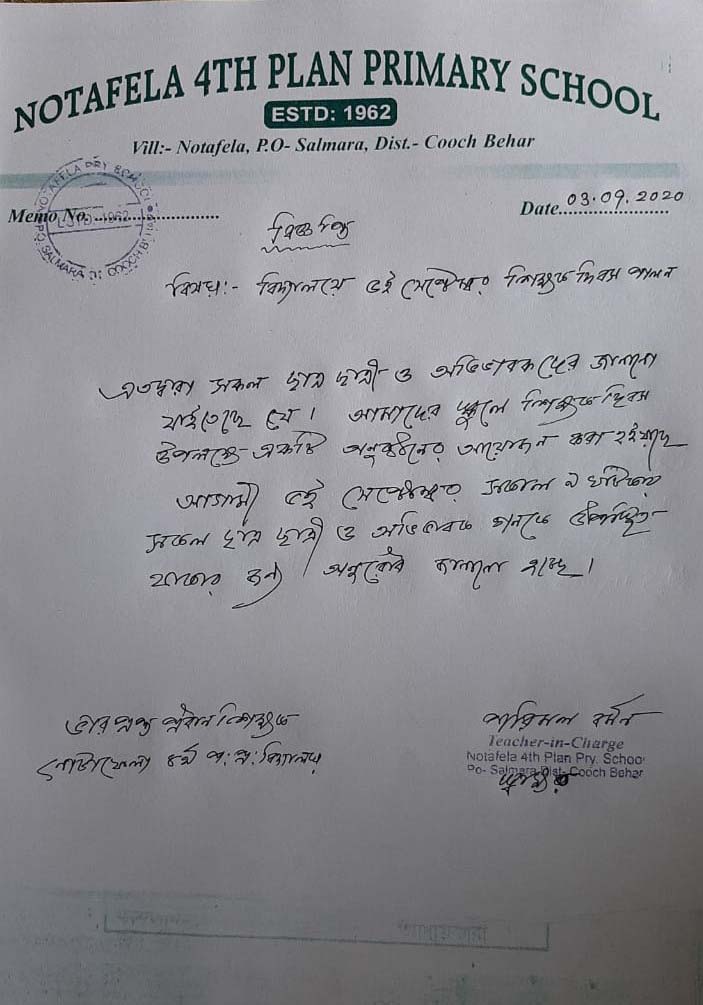 NOTAFELA 4TH PLAN PRIMARY SCHOOL
ESTD: 1962
Vill:- Notafela, P.O- Salmara, Dist.- Cooch Behar
NOTAFELA PRY SCHOOL
ESTD. 1962
P.O. SALMARA COOCH B
Memo No. ........................
Date...................... 03.09.2020
বিজ্ঞপ্তি
বিষয়:- বিদ্যালয়ে ৫ই সেপ্টেম্বর শিক্ষক দিবস পালন
এতদ্বারা সকল ছাত্র ছাত্রী ও অভিভাবকদের জানানো
যাইতেছে যে। আমাদের স্কুলে শিক্ষক দিবস
উপলক্ষে একটি অনুষ্ঠানের আয়োজন করা হইয়াছে
আগামী ৫ই সেপ্টেম্বর সকাল ৯ ঘটিকায়
সকল ছাত্র ছাত্রী ও অভিভাবক গনকে উপস্থিত
থাকার জন্য অনুরোধ জানানো হচ্ছে।
ভারপ্রাপ্ত প্রধান শিক্ষক
নোটাফেলা ৪র্থ প: প্রা: বিদ্যালয়
পরিমল বর্মন
Teacher-in-Charge
Notafela 4th Plan Pry. School
Po- Salmara Dist- Cooch Behar
স্বাক্ষর